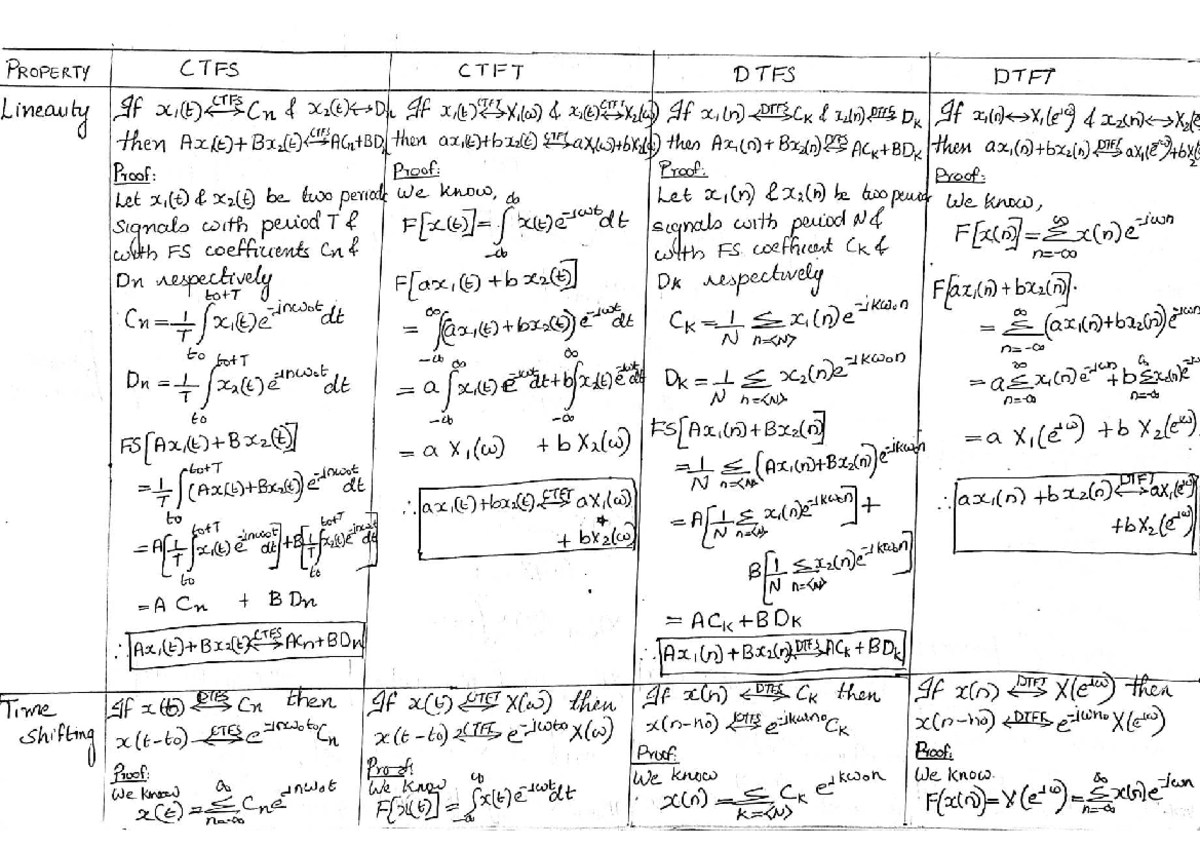 PROPERTY
CTFS
CTFT
DTFS
DTFT
Linearity
If x₁(t) ⟷CTFS Cn & x₂(t) ⟷ Dn
then Ax₁(t) + Bx₂(t) ⟷CTFS ACn + BDn
Proof:
Let x₁(t) & x₂(t) be two periodic
signals with period T &
with FS coefficients Cn &
Dn respectively
Cn = 1/T ∫_{t0}^{t0+T} x₁(t) e^{-jnω0t} dt
Dn = 1/T ∫_{t0}^{t0+T} x₂(t) e^{-jnω0t} dt
FS[Ax₁(t) + Bx₂(t)]
= 1/T ∫_{t0}^{t0+T} (Ax₁(t) + Bx₂(t)) e^{-jnω0t} dt
= A[1/T ∫_{t0}^{t0+T} x₁(t) e^{-jnω0t} dt] + B[1/T ∫_{t0}^{t0+T} x₂(t) e^{-jnω0t} dt]
= A Cn + B Dn
∴ Ax₁(t) + Bx₂(t) ⟷CTFS ACn + BDn
If x₁(t) ⟷CTFT X₁(ω) & x₂(t) ⟷CTFT X₂(ω)
then ax₁(t) + bx₂(t) ⟷CTFT aX₁(ω) + bX₂(ω)
Proof:
We know,
F[x(t)] = ∫_{-∞}^{∞} x(t) e^{-jωt} dt
F[ax₁(t) + bx₂(t)]
= ∫_{-∞}^{∞} (ax₁(t) + bx₂(t)) e^{-jωt} dt
= a ∫_{-∞}^{∞} x₁(t) e^{-jωt} dt + b ∫_{-∞}^{∞} x₂(t) e^{-jωt} dt
= a X₁(ω) + b X₂(ω)
∴ ax₁(t) + bx₂(t) ⟷CTFT aX₁(ω)
+ bX₂(ω)
If x₁(n) ⟷DTFS CK & x₂(n) ⟷DTFS DK
then Ax₁(n) + Bx₂(n) ⟷DTFS ACK + BDK
Proof:
Let x₁(n) & x₂(n) be two period
signals with period N &
with FS coefficient CK &
DK respectively
CK = 1/N Σ_{n=<N>} x₁(n) e^{-jkω0n}
DK = 1/N Σ_{n=<N>} x₂(n) e^{-jkω0n}
FS[Ax₁(n) + Bx₂(n)]
= 1/N Σ_{n=<N>} (Ax₁(n) + Bx₂(n)) e^{-jkω0n}
= A[1/N Σ_{n=<N>} x₁(n) e^{-jkω0n}] +
B[1/N Σ_{n=<N>} x₂(n) e^{-jkω0n}]
= ACK + BDK
∴ Ax₁(n) + Bx₂(n) ⟷DTFS ACK + BDK
If x₁(n) ⟷ X₁(e^{jω}) & x₂(n) ⟷ X₂(e
then ax₁(n) + bx₂(n) ⟷DTFT aX₁(e^{jω}) + bX₂
Proof:
We know,
F[x(n)] = Σ_{n=-∞}^{∞} x(n) e^{-jωn}
F[ax₁(n) + bx₂(n)].
= Σ_{n=-∞}^{∞} (ax₁(n) + bx₂(n)) e^{-jωn}
= a Σ_{n=-∞}^{∞} x₁(n) e^{-jωn} + b Σ_{n=-∞}^{∞} x₂(n) e^{-jω
= a X₁(e^{jω}) + b X₂(e^{jω})
∴ ax₁(n) + bx₂(n) ⟷DTFT aX₁(e^{jω})
+ bX₂(e^{jω})
Time
Shifting
If x(t) ⟷CTFS Cn then
x(t-t0) ⟷CTFS e^{-jnω0t0} Cn
Proof:
We know
x(t) = Σ_{n=-∞}^{∞} Cn e^{jnω0t}
If x(t) ⟷CTFT X(ω) then
x(t-t0) ⟷CTFT e^{-jωt0} X(ω)
Proof:
We know
F[x(t)] = ∫_{-∞}^{∞} x(t) e^{-jωt} dt
If x(n) ⟷DTFS CK then
x(n-n0) ⟷DTFS e^{-jkω0n0} CK
Proof:
We know
x(n) = Σ_{k=<N>} CK e^{jkω0n}
If x(n) ⟷DTFT X(e^{jω}) then
x(n-n0) ⟷DTFT e^{-jωn0} X(e^{jω})
Proof:
We know.
F(x(n)) = X(e^{jω}) = Σ_{n=-∞}^{∞} x(n) e^{-jωn}